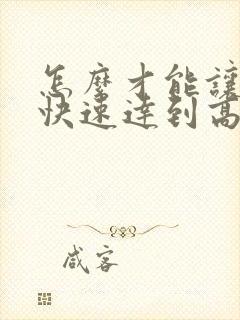 怎麼才能讓
快速達到高
咸客